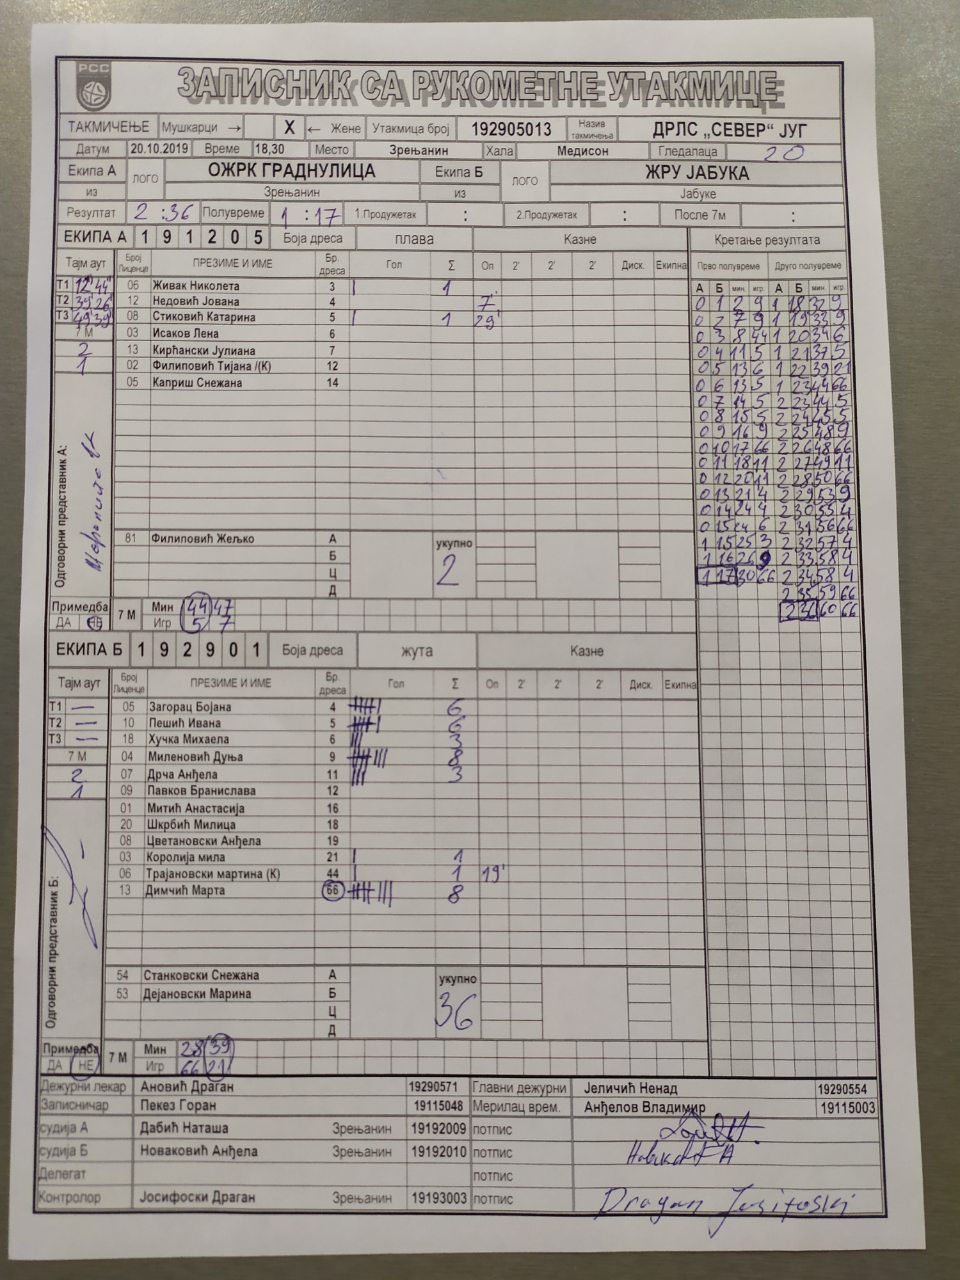 РСС
ЗАПИСНИК СА РУКОМЕТНЕ УТАКМИЦЕ
ТАКМИЧЕЊЕ Мушкарци → X ← Жене Утакмица број 192905013 Назив такмичења ДРЛС „СЕВЕР“ ЈУГ
Датум 20.10.2019 Време 18,30 Место Зрењанин Хала Медисон Гледалаца 20
Екипа А ЛОГО ОЖРК ГРАДНУЛИЦА Екипа Б ЛОГО ЖРУ ЈАБУКА
из Зрењанин из Јабуке
Резултат 2 : 36 Полувреме 1 : 17 1.Продужетак : 2.Продужетак : После 7м :
ЕКИПА А 1 9 1 2 0 5 Боја дреса плава Казне Кретање резултата
Тајм аут Број Лиценце ПРЕЗИМЕ И ИМЕ Бр. дреса Гол Σ Оп 2' 2' 2' Диск. Екипна Прво полувреме Друго полувреме
А Б мин. игр. А Б мин. игр.
Т1 12' 44" 06 Живак Николета 3 | 1
Т2 39' 26" 12 Недовић Јована 4 7'
Т3 49' 39" 08 Стиковић Катарина 5 | 1 29'
7 М 03 Исаков Лена 6
2 13 Кирћански Јулиана 7
1 02 Филиповић Тијана /(К) 12
05 Каприш Снежана 14
0 1 2 9 1 18 32 9
0 2 7 9 1 19 33 9
0 3 8 44 1 20 34 6
0 4 11 5 1 21 37 5
0 5 13 6 1 22 39 21
0 6 13 5 1 23 44 66
0 7 14 5 2 23 44 5
0 8 15 5 2 24 45 5
0 9 16 9 2 25 48 9
0 10 17 66 2 26 48 66
0 11 18 11 2 27 49 11
0 12 20 11 2 28 50 66
0 13 21 4 2 29 53 9
0 14 24 4 2 30 55 4
0 15 24 6 2 31 56 66
1 15 25 3 2 32 57 4
1 16 26 9 2 33 58 4
1 17 30 66 2 34 58 4
2 35 59 66
2 36 60 66
Одговорни представник А:
81 Филиповић Жељко А укупно
Б 2
Ц
Д
Примедба 7 М Мин 44 47
ДА НЕ Игр 5 7
ЕКИПА Б 1 9 2 9 0 1 Боја дреса жута Казне
Тајм аут Број Лиценце ПРЕЗИМЕ И ИМЕ Бр. дреса Гол Σ Оп 2' 2' 2' Диск. Екипна
Т1 — 05 Загорац Бојана 4 6
Т2 — 10 Пешић Ивана 5 6
Т3 — 18 Хучка Михаела 6 ||| 3
7 М 04 Миленовић Дуња 9 8
2 07 Дрча Анђела 11 ||| 3
1 09 Павков Бранислава 12
01 Митић Анастасија 16
20 Шкрбић Милица 18
08 Цветановски Анђела 19
03 Королија мила 21 | 1
06 Трајановски мартина (К) 44 | 1 19'
13 Димчић Марта 66 8
Одговорни представник Б:
54 Станковски Снежана А укупно
53 Дејановски Марина Б 36
Ц
Д
Примедба 7 М Мин 28 39
ДА НЕ Игр 66 21
Дежурни лекар Ановић Драган 19290571 Главни дежурни Јеличић Ненад 19290554
Записничар Пекез Горан 19115048 Мерилац врем. Анђелов Владимир 19115003
судија А Дабић Наташа Зрењанин 19192009 потпис
судија Б Новаковић Анђела Зрењанин 19192010 потпис
Делегат потпис
Контролор Јосифоски Драган Зрењанин 19193003 потпис Dragan Josifoski